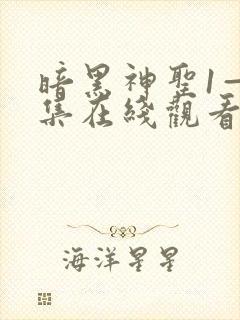 暗黑神聖1一
集在綫觀看
海洋星星